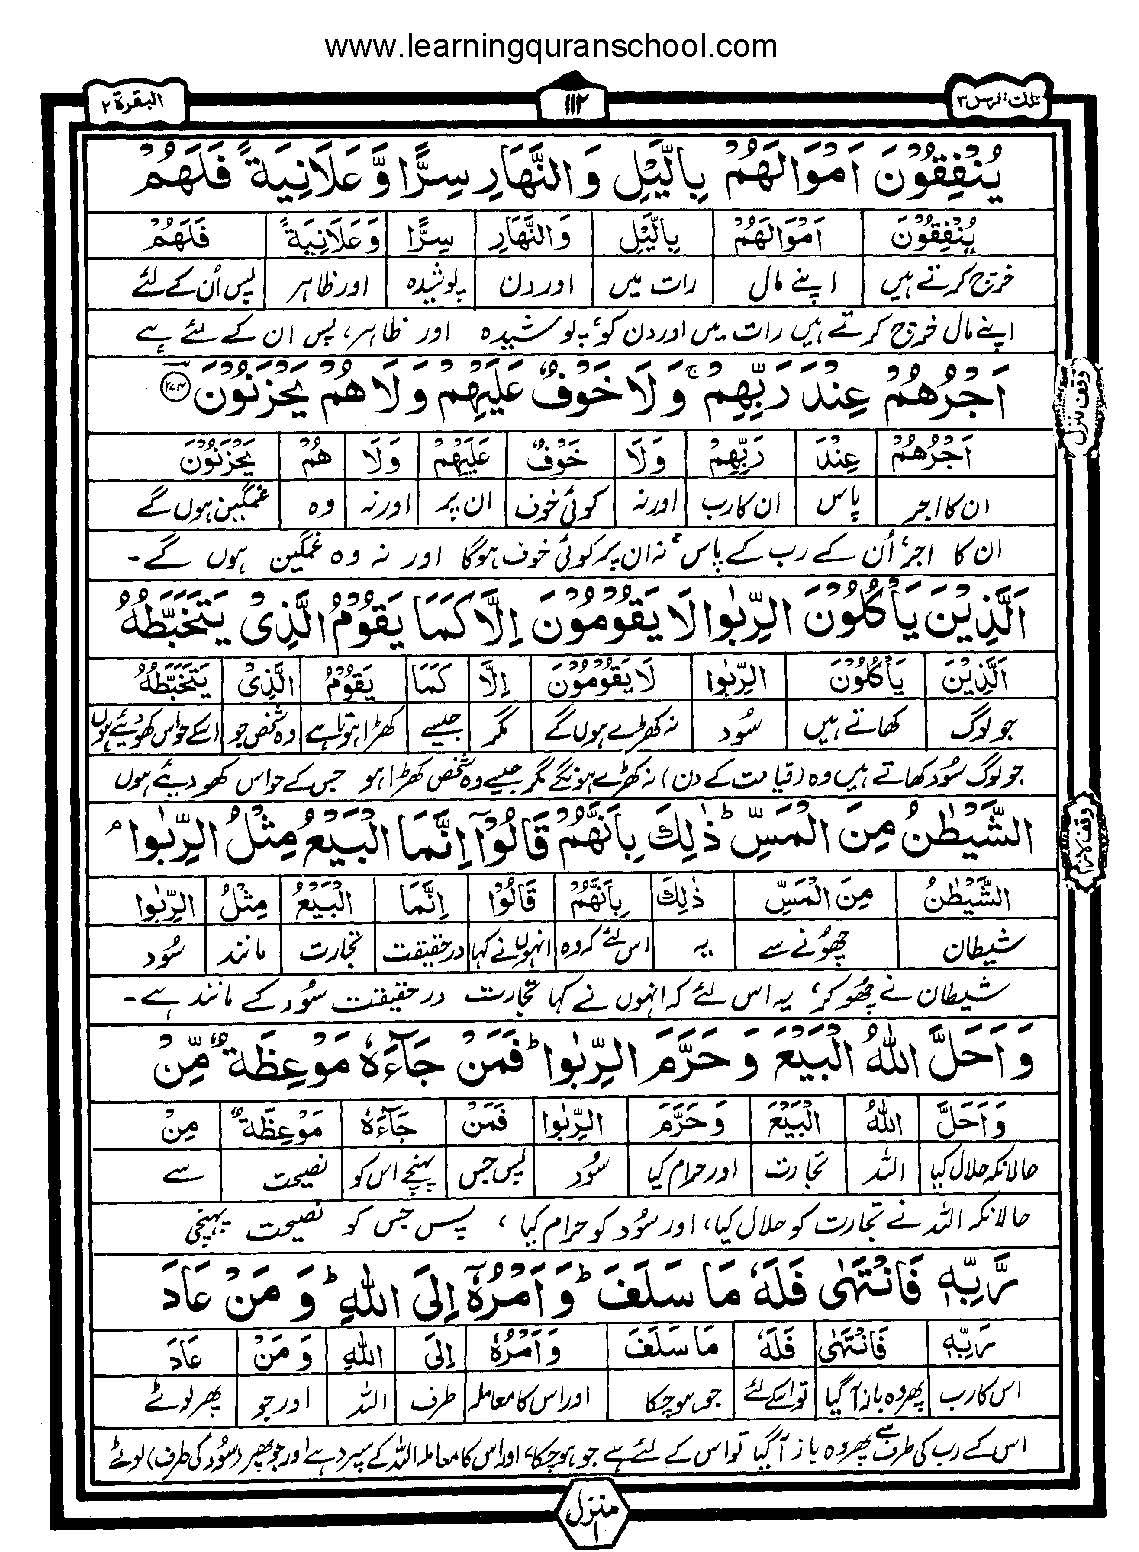 www.learningquranschool.com
تلك الرسل ٣ ١١٢ البقرة ٢
يُنْفِقُوْنَ اَمْوَالَهُمْ بِالَّيْلِ وَ النَّهَارِ سِرًّا وَّ عَلَانِيَةً فَلَهُمْ
يُنْفِقُوْنَ اَمْوَالَهُمْ بِالَّيْلِ وَالنَّهَارِ سِرًّا وَّعَلَانِيَةً فَلَهُمْ
خرچ کرتے ہیں اپنے مال رات میں اور دن پوشیدہ اور ظاہر پس اُن کے لئے
اپنے مال خرچ کرتے ہیں رات میں اور دن کو، پوشیدہ اور ظاہر، پس ان کے لئے ہے
اَجْرُهُمْ عِنْدَ رَبِّهِمْ ۚ وَلَا خَوْفٌ عَلَيْهِمْ وَلَا هُمْ يَحْزَنُوْنَ ﴿۲۷۴﴾
وقف منزل
اَجْرُهُمْ عِنْدَ رَبِّهِمْ وَلَا خَوْفٌ عَلَيْهِمْ وَلَا هُمْ يَحْزَنُوْنَ
ان کا اجر پاس ان کا رب اور نہ کوئی خوف ان پر اور نہ وہ غمگین ہوں گے
ان کا اجر، اُن کے رب کے پاس، نہ ان پر کوئی خوف ہوگا اور نہ وہ غمگین ہوں گے۔
اَلَّذِيْنَ يَاْكُلُوْنَ الرِّبٰوا لَا يَقُوْمُوْنَ اِلَّا كَمَا يَقُوْمُ الَّذِيْ يَتَخَبَّطُهُ
اَلَّذِيْنَ يَاْكُلُوْنَ الرِّبٰوا لَا يَقُوْمُوْنَ اِلَّا كَمَا يَقُوْمُ الَّذِيْ يَتَخَبَّطُهُ
جو لوگ کھاتے ہیں سُود نہ کھڑے ہوں گے مگر جیسے کھڑا ہوتا ہے وہ شخص جو اسکے حواس کھو دیئے ہوں
جو لوگ سُود کھاتے ہیں وہ (قیامت کے دن) نہ کھڑے ہونگے مگر جیسے وہ شخص کھڑا ہو جس کے حواس کھو دیئے ہوں
الشَّيْطٰنُ مِنَ الْمَسِّ ؕ ذٰلِكَ بِاَنَّهُمْ قَالُوْۤا اِنَّمَا الْبَيْعُ مِثْلُ الرِّبٰوا ۘ
الشَّيْطٰنُ مِنَ الْمَسِّ ذٰلِكَ بِاَنَّهُمْ قَالُوْۤا اِنَّمَا الْبَيْعُ مِثْلُ الرِّبٰوا
شیطان چھونے سے یہ اس لئے کہ وہ انہوں نے کہا درحقیقت تجارت مانند سُود
شیطان نے چھو کر، یہ اس لئے کہ انہوں نے کہا تجارت درحقیقت سُود کے مانند ہے۔
وَ اَحَلَّ اللّٰهُ الْبَيْعَ وَ حَرَّمَ الرِّبٰوا ؕ فَمَنْ جَآءَهٗ مَوْعِظَةٌ مِّنْ
وَاَحَلَّ اللّٰهُ الْبَيْعَ وَحَرَّمَ الرِّبٰوا فَمَنْ جَآءَهٗ مَوْعِظَةٌ مِنْ
حالانکہ حلال کیا اللہ تجارت اور حرام کیا سُود پس جس پہنچے اس کو نصیحت سے
حالانکہ اللہ نے تجارت کو حلال کیا، اور سُود کو حرام کیا، پس جس کو نصیحت پہنچی
رَّبِّهٖ فَانْتَهٰى فَلَهٗ مَا سَلَفَ ؕ وَ اَمْرُهٗۤ اِلَى اللّٰهِ ؕ وَ مَنْ عَادَ
رَبِّهٖ فَانْتَهٰى فَلَهٗ مَا سَلَفَ وَاَمْرُهٗۤ اِلَى اللّٰهِ وَمَنْ عَادَ
اس کا رب پھر وہ باز آگیا تو اسکے لئے جو ہو چکا اور اس کا معاملہ طرف اللہ اور جو پھر لوٹے
اس کے رب کی طرف سے پھر وہ باز آگیا تو اس کے لئے ہے جو ہو چکا، اور اس کا معاملہ اللہ کے سپرد ہے اور جو پھر (سُود کی طرف) لوٹے
منزل ١